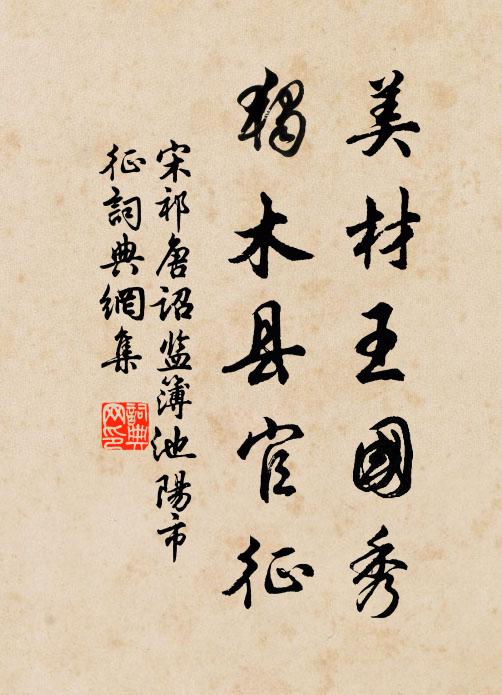 美材王國秀
獨木县官征
宋祁唐詔监簿池陽市
征詞典網集
詞典网印